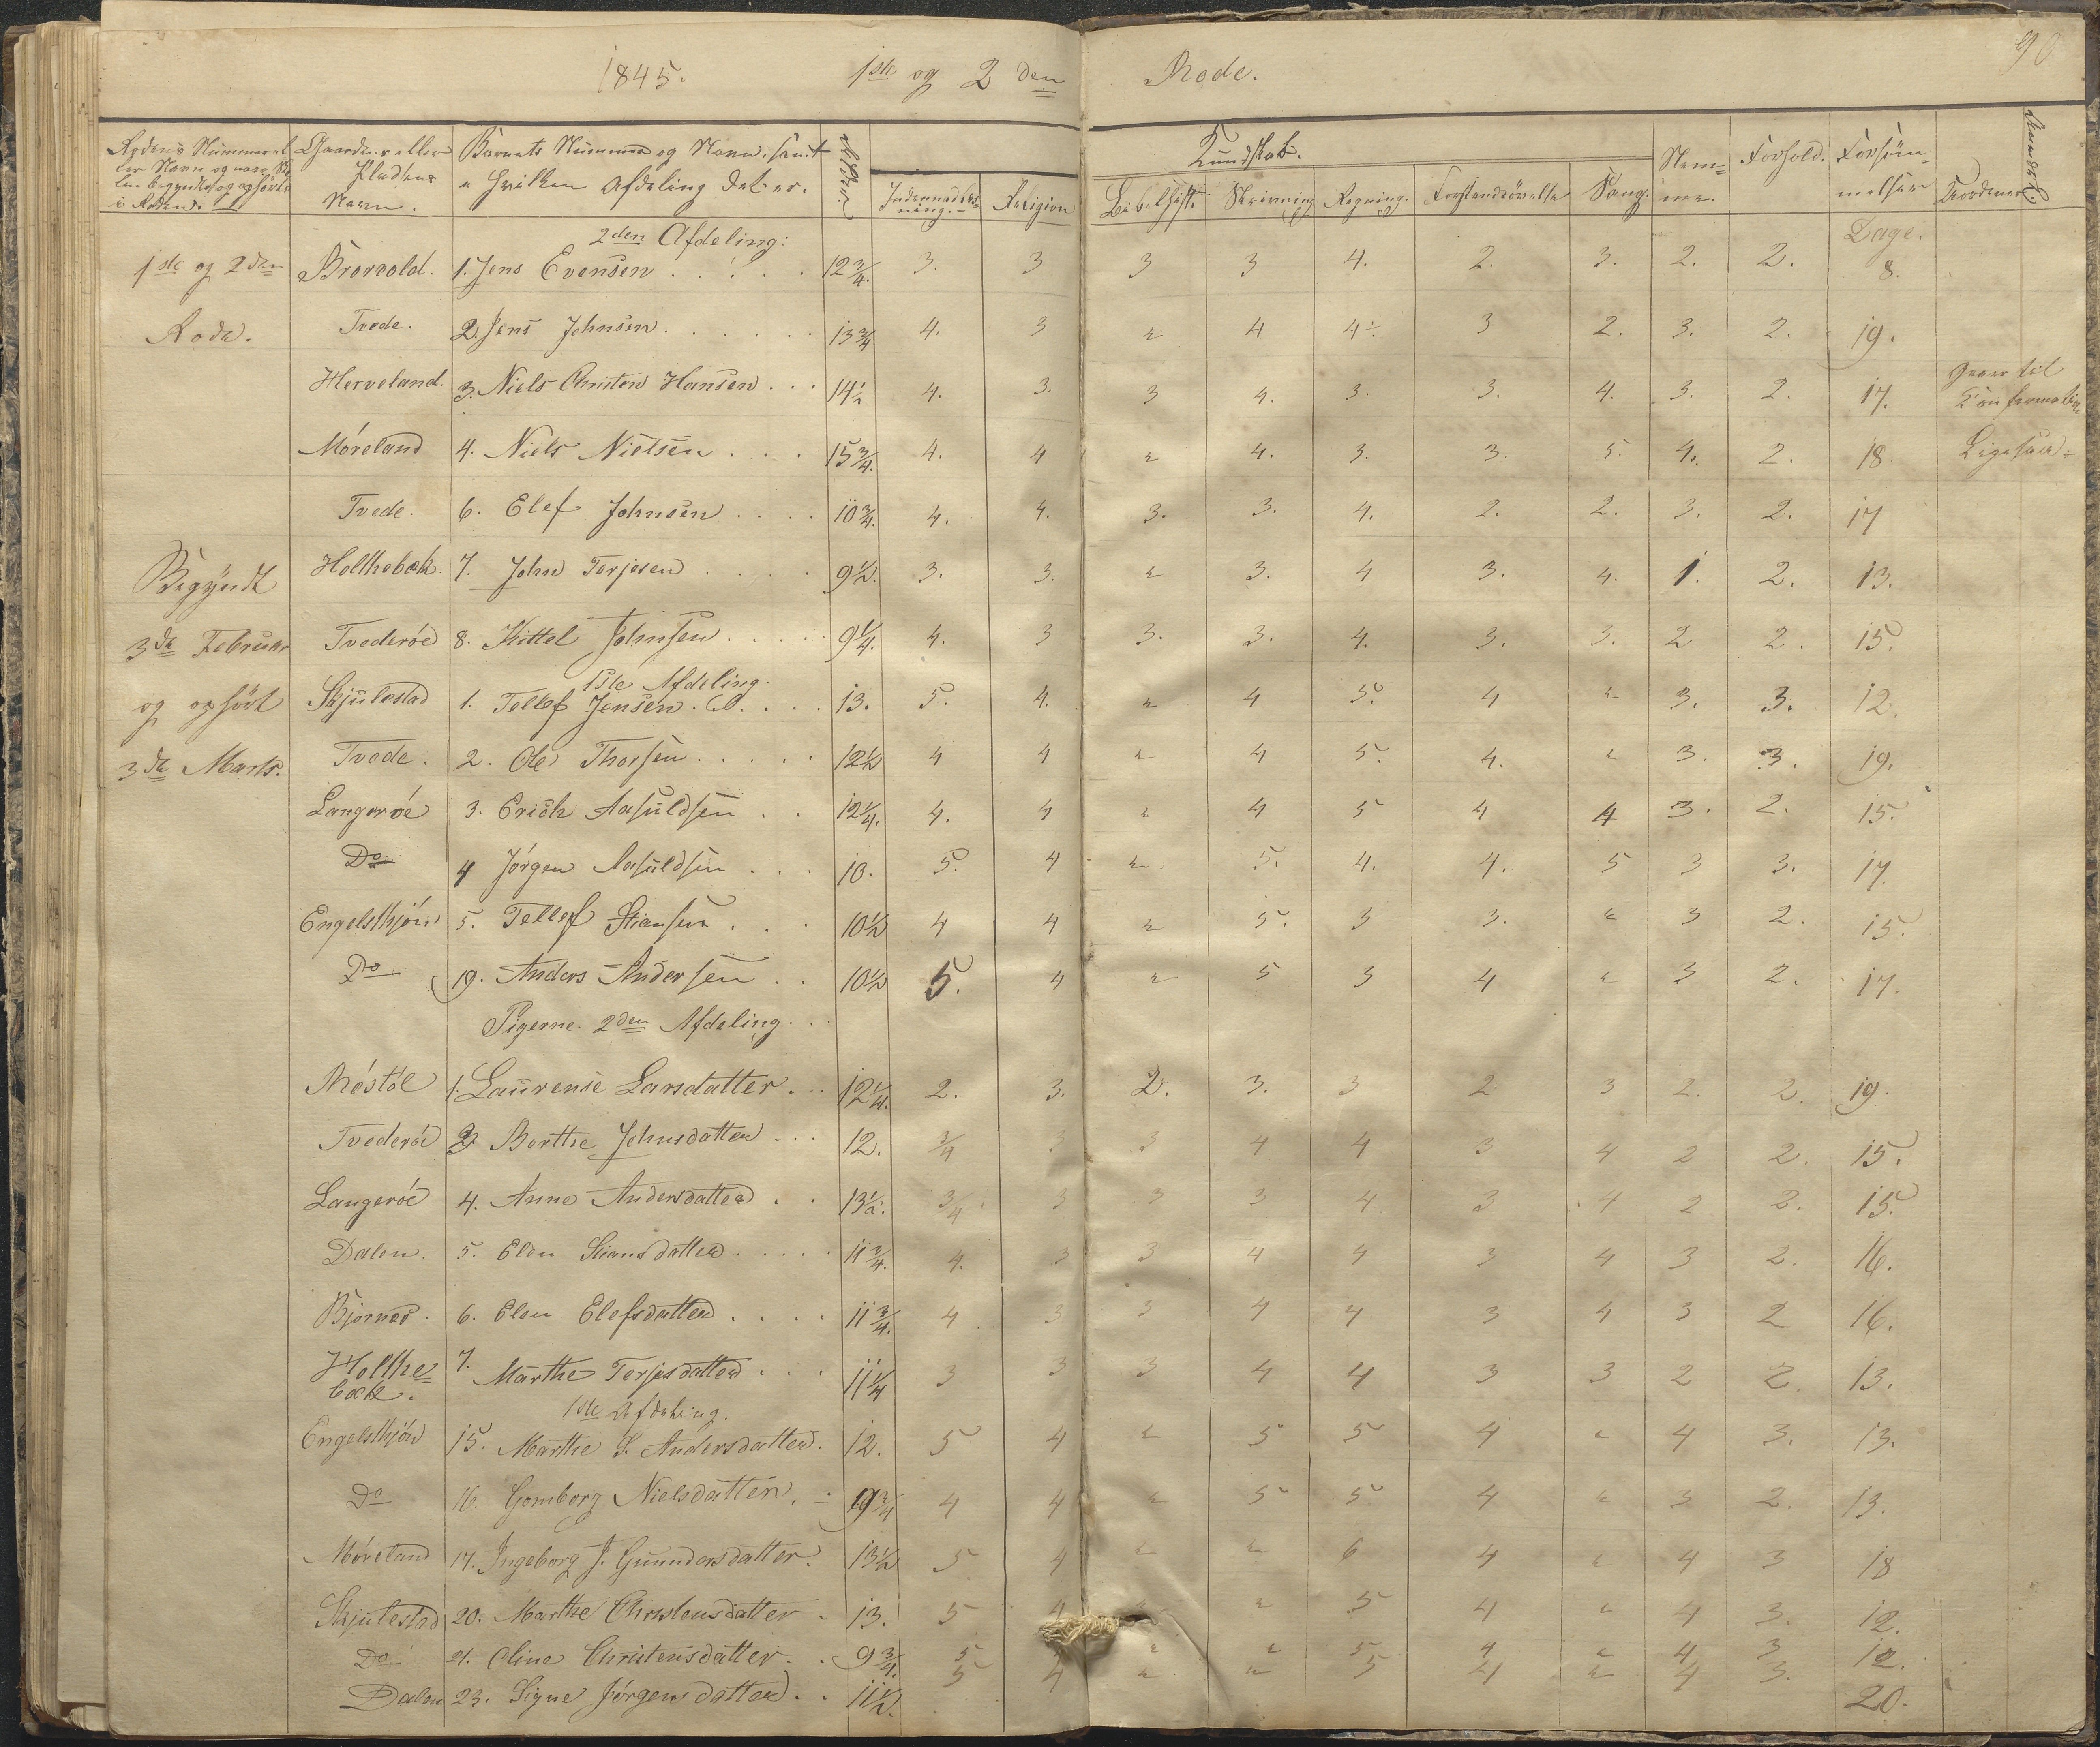 96
1845. 1ste og 2den Rode.
Rodens Nummer el Gaardens eller Barnets Nummer og Navn, samt Alder. Kundskab. Nem- Forhold. Forsøm-
ler Navn og naar Pladsens i hvilken Afdeling det er. Indenadlæs- Religion Bibelhist. Skrivning Regning. Forstandsövelse Sang. me. melser
i Roden. Navn. ning.
2den Afdeling: Dage.
1ste og 2den Brovold. 1. Jens Evensen . . . . 12 3/4. 3. 3 3 3 4. 2. 3. 2. 2. 8.
Rode. Tvede. 2. Jens Johnsen . . . . . 13 3/4 4. 3 " 4 4÷. 3 2. 3. 2. 19.
Herveland. 3. Niels Christen Hansen . . . 14 1/2 4. 3. 3 4. 3. 3. 4. 3. 2. 17. Gaaer til Confirmation
Móreland 4. Niels Nielsen . . . 15 3/4. 4. 4 " 4. 3. 3. 5. 4. 2. 18. Ligesaa
Tvede. 6. Elef Johnsen . . . . 10 3/4. 4. 4. 3. 3. 4. 2. 2. 3. 2. 17
Begyndt Holthebæk. 7. John Terjesen . . . . 9 1/2. 3. 3. " 3. 4 3. 4. 1. 2. 13.
3die Februar Tvederöe 8. Kittel Johnsen . . . . . 9 1/4. 4. 3 3. 3. 4. 3. 3. 2 2. 15.
1ste Afdeling.
og ophört Skjulestad 1. Tellef Jensen . . . . 13. 5. 4. " 4 5. 4 " 3. 3. 12.
3die Marts. Tvede. 2. Ole Thorsen . . . . . 12 1/2 4 4 " 4 5. 4. " 3. 3. 19.
Langeröe 3. Erich Aasuldsen . . 12 1/4. 4. 4 " 4 5 4 4 3. 2. 15.
Do 4 Jörgen Aasuldsen . . . 10. 5. 4 " 5. 4. 4. 5 3 3. 17.
Engelsthjón 5. Tellef Stiansen . . . 10 1/2 4 4 " 5. 3 3. " 3 2. 15.
Do 19. Anders Andersen . . 10 1/2 5. 4 " 5 3 4 " 3 2. 17.
Pigerne. 2den Afdeling . . .
Röstöl 1. Laurense Larsdatter . . . 12 1/4. 2. 3. 2. 3. 3 2 3 2. 2. 19.
Tvederöe 3 Berthe Johnsdatter . . . 12. 3/4 3 3 4 4 3 4 2 2. 15.
Langeröe 4. Anne Andersdatter . . 13 1/2. 3/4 3 3 3 4 3 4 2 2. 15.
Dalen. 5. Elen Stiansdatter . . . . . 11 3/4. 4. 3 3 4 4 3 4 3 2. 16.
Bjornes. 6. Elen Elefsdatter . . . . 11 3/4. 4 3 3 4 4 3 4 3 2 16.
Holthe- 7. Marthe Terjesdatter . . . 11 1/4 3 3 3 4 4 3 3 2 2. 13.
bæk.
1ste Afdeling.
Engelsthjón 15. Marthe S. Andersdatter. 12. 5 4 " 5 5 4 " 4 3. 13.
Do 16. Gomborg Nielsdatter. 9 3/4 4 4 " 5 5 4 " 3 2. 13.
Móreland 17. Ingeborg J. Gunndersdatter. 13 1/2 5 4 " " 6 4 " 4 3 18
Skjulestad 20. Marthe Christensdatter . 13. 5 4 " " 5 4 " 4 3. 12.
Do 21. Oline Christensdatter . . 9 3/4. 5 " " 5 4 " 4 3 12.
Dalen 23. Signe Jórgensdatter . . 11 1/2. 5 4 " " 5 4 " 4 3. 20.